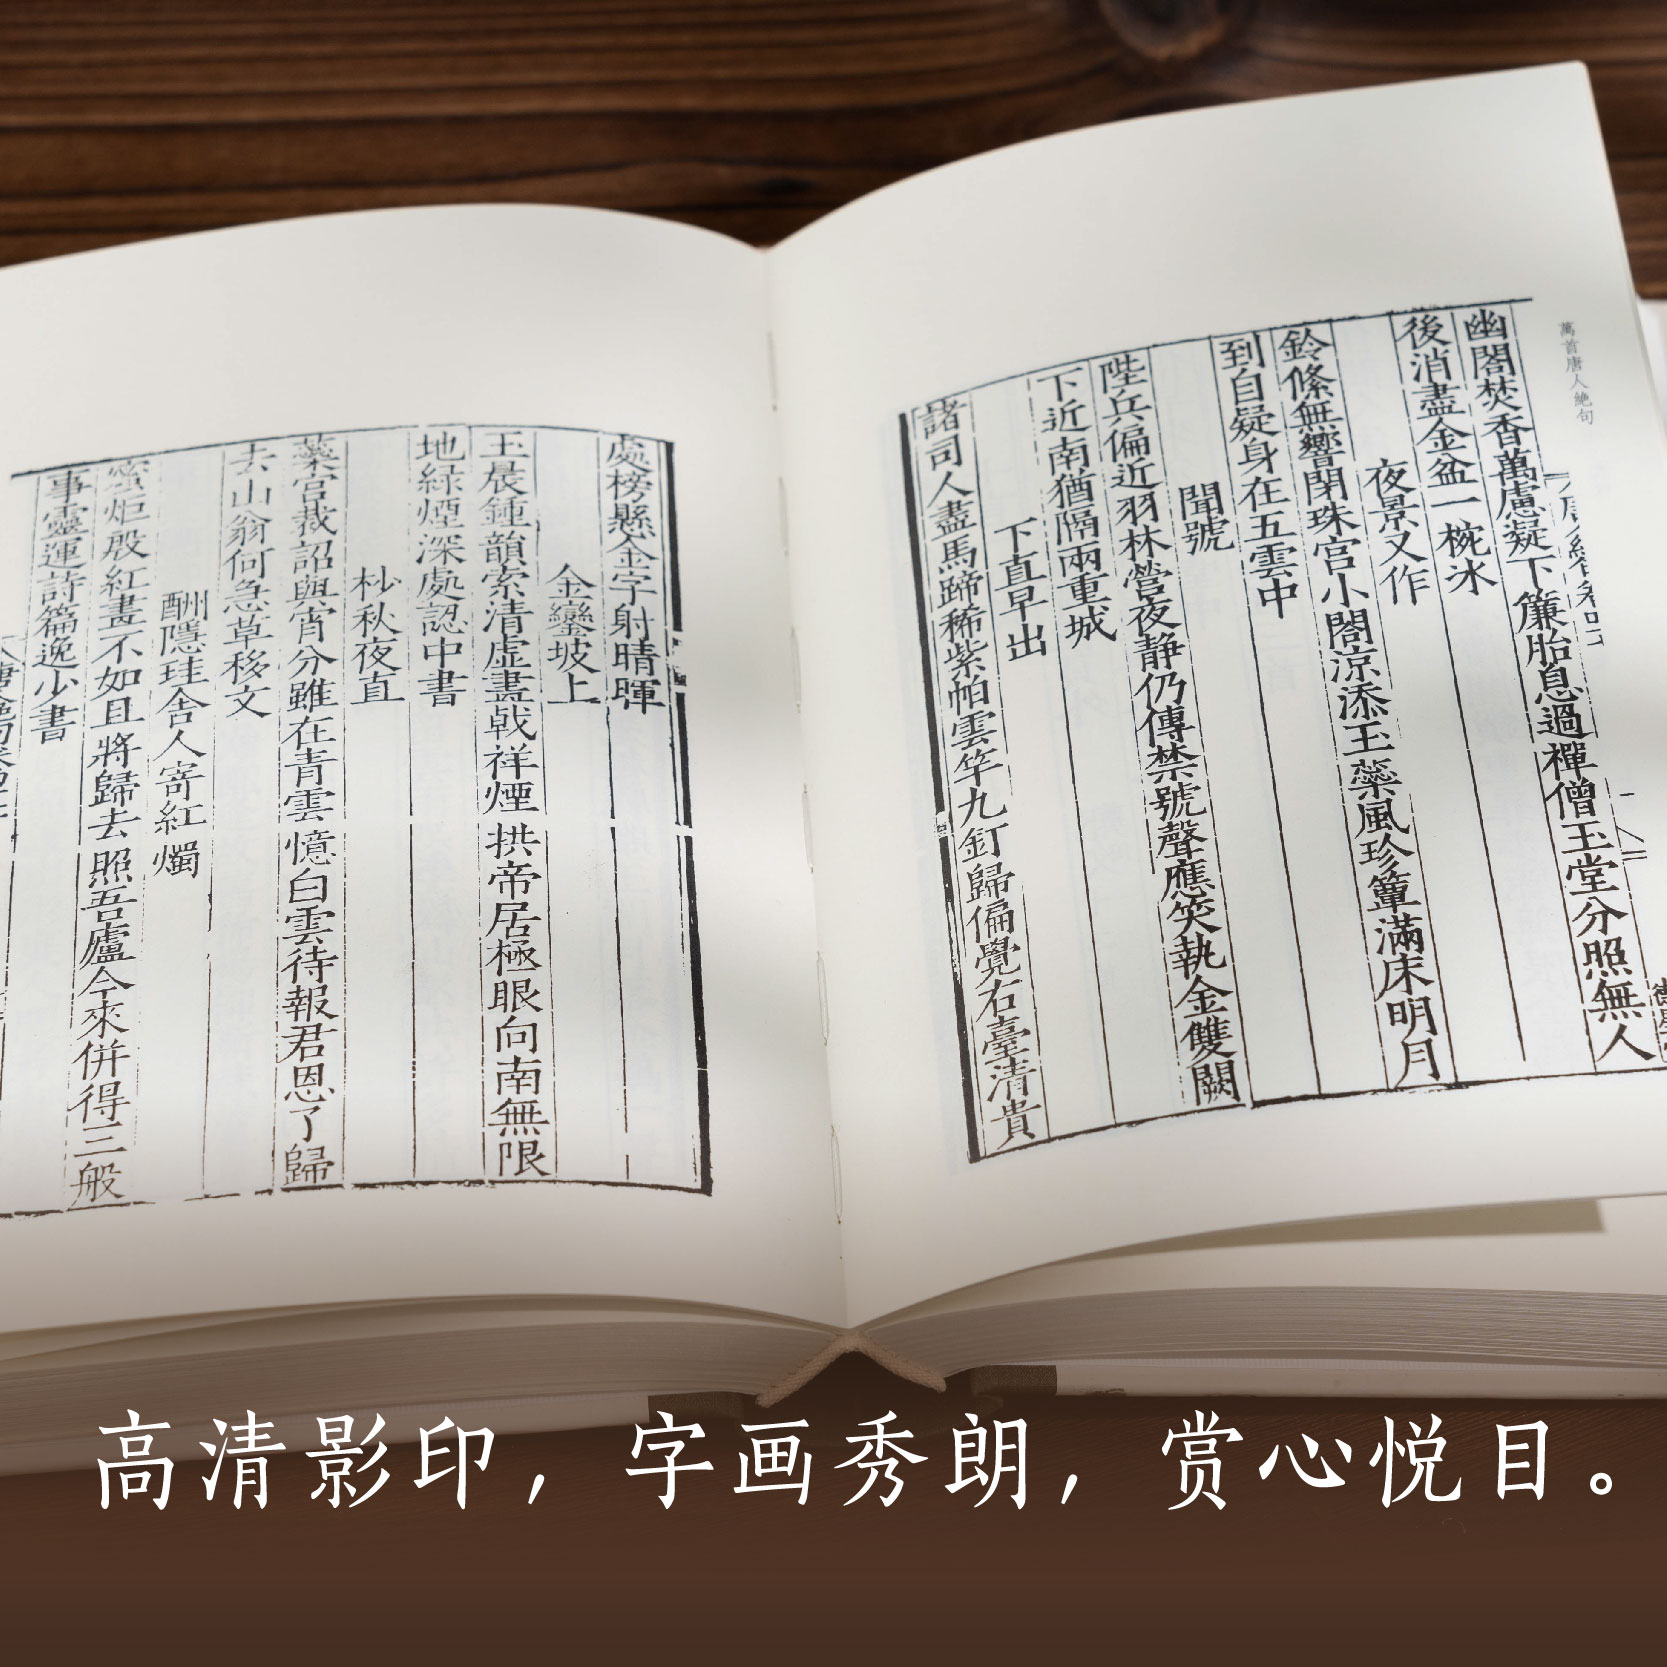 萬首唐人絶句
幽閣焚香萬慮凝下簾胎息過禪僧玉堂分照無人
後消盡金盆一椀冰
夜景又作
鈴絛無響閉珠宮小閣凉添玉蘂風珍簟滿床明月
到自疑身在五雲中
聞號
陛兵偏近羽林營夜静仍傳禁號聲應笑執金雙闕
下近南猶隔兩重城
下直早出
諸司人盡馬蹄稀紫帕雲竿九釘歸偏覺右臺清貴
處榜懸金字射晴暉
金鑾坡上
玉晨鍾韻索清虛畫戟祥煙拱帝居極眼向南無限
地緑煙深處認中書
杪秋夜直
蘂宮裁詔與宵分雖在青雲憶白雲待報君恩了歸
去山翁何急草移文
酬隱珪舍人寄紅燭
蜜炬殷紅畫不如且將歸去照吾廬今來併得三般
事靈運詩篇逸少書
高清影印，字画秀朗，赏心悦目。